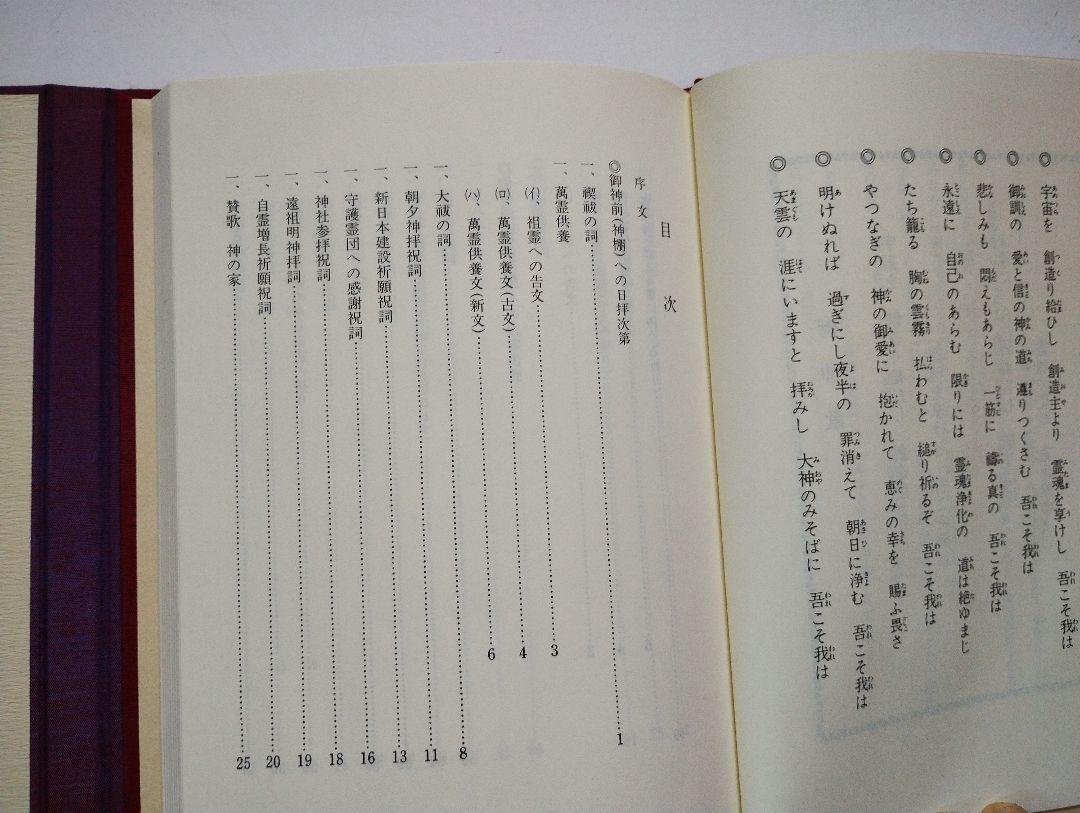 ◎ 宇宙を 創造り給ひし 創造主より 霊魂を享けし 吾こそ我は
◎ 御訓の 愛と信の神の道 遵りつくさむ 吾こそ我は
◎ 悲しみも 悶えもあらじ 一筋に 禱る真の 吾こそ我は
◎ 永遠に 自己のあらむ 限りには 霊魂浄化の 道は絶ゆまじ
◎ たち籠る 胸の雲霧 払わむと 縋り祈るぞ 吾こそ我は
◎ やつなぎの 神の御愛に 抱かれて 恵みの幸を 賜ふ畏さ
◎ 明けぬれば 過ぎにし夜半の 罪消えて 朝日に浄む 吾こそ我は
◎ 天雲の 涯にいますと 拝みし 大神のみそばに 吾こそ我は
目次
序文
◎御神前(神棚)への日拝次第
一、禊祓の詞……1
一、萬霊供養
(イ)、祖霊への告文……3
(ロ)、萬霊供養文(古文)……4
(ハ)、萬霊供養文(新文)……6
一、大祓の詞……8
一、朝夕神拝祝詞……11
一、新日本建設祈願祝詞……13
一、守護霊団への感謝祝詞……16
一、神社参拝祝詞……18
一、遠祖明神拝詞……19
一、自霊増長祈願祝詞……20
一、賛歌 神の家……25